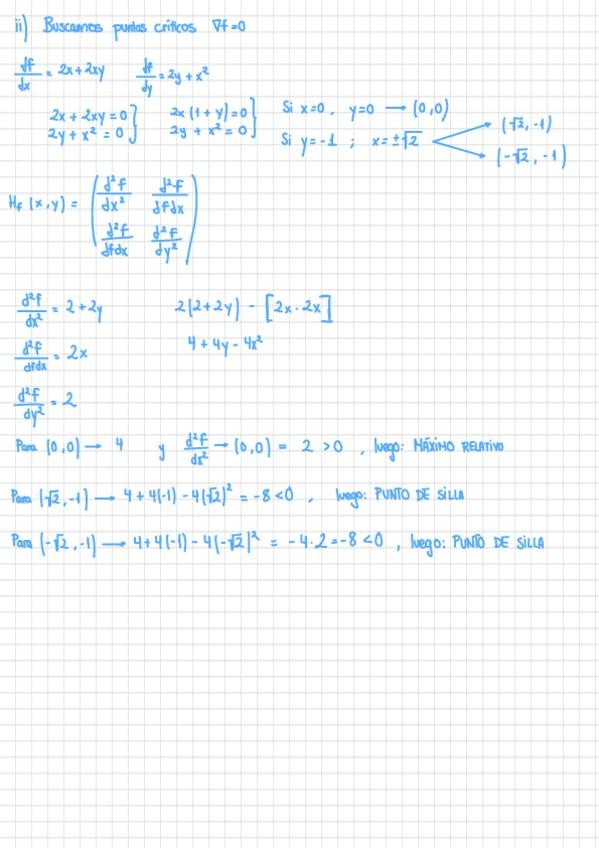 ii) Buscamos puntos críticos ∇f=0
df/dx = 2x+2xy df/dy = 2y+x²
2x + 2xy = 0 } 2x(1+y)=0 } Si x=0, y=0 → (0,0)
2y + x² = 0 } 2y + x² = 0 } Si y=-1 ; x=±√2 → (√2,-1)
→ (-√2,-1)
Hf (x,y) = ( d²f/dx² d²f/dfdx
d²f/dfdx d²f/dy² )
d²f/dx² = 2+2y 2(2+2y) - [2x·2x]
d²f/dfdx = 2x 4+4y-4x²
d²f/dy² = 2
Para (0,0) → 4 y d²f/dx² → (0,0) = 2 >0 , luego: MÁXIMO RELATIVO
Para (√2,-1) → 4+4(-1)-4(√2)² = -8<0 , luego: PUNTO DE SILLA
Para (-√2,-1) → 4+4(-1)-4(-√2)² = -4·2=-8<0 , luego: PUNTO DE SILLA